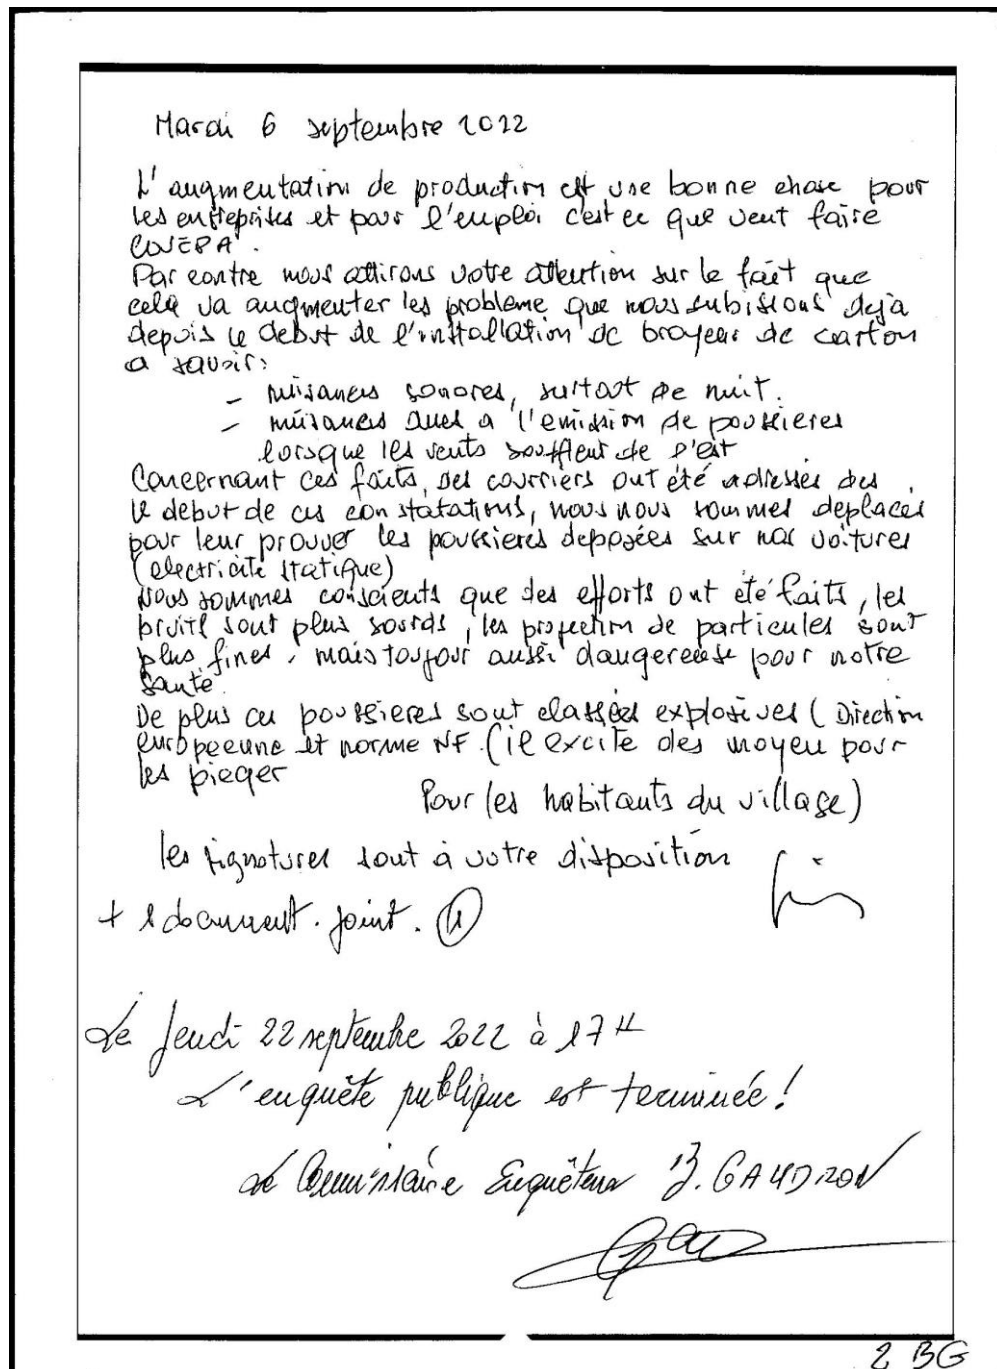 Mardi 6 septembre 2022
L'augmentation de production est une bonne chose pour
les entreprises et pour l'emploi c'est ce que veut faire
COVEPA.
Par contre nous attirons votre attention sur le fait que
cela va augmenter les probleme que nous subissons deja
depuis le debut de l'installation de broyeur de carton
a savoir:
- nuisances sonores, surtout de nuit.
- nuisances dues a l'emission de poussieres
lorsque les vents soufflent de l'est
Concernant ces faits, des courriers ont été adressés des
le debut de ces constatations, nous nous sommes deplacés
pour leur prouver les poussieres deposées sur nos voitures
(electricite statique)
Nous sommes conscients que des efforts ont été faits, les
bruits sont plus sourds, les projection de particules sont
plus fines, mais toujour aussi dangereuse pour notre
santé
De plus ces poussieres sont classées explosives (Direction
europeenne et norme NF. (il excite des moyen pour
les pieger
Pour les habitants du village)
les signatures sont à votre disposition
+ 1 document. joint. (1)
Le Jeudi 22 septembre 2022 à 17H
L'enquête publique est terminée!
Le Commissaire Enquêteur B. GAUDRON
2 BG